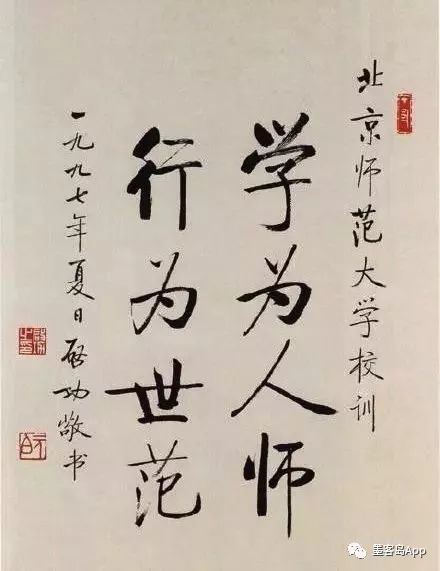 北京师范大学校训
学为人师
行为世范
一九九七年夏日启功敬书
墨客岛App